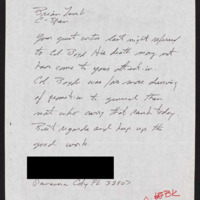 Brian Lamb
C-Span
Your guest writer last night referred
to Col Boyd His death may not
have come to your attention
Col. Boyd was far more deserving
of promotion to general than
most who carry that rank today.
Best regards and keep up the
good work
Panama City FL